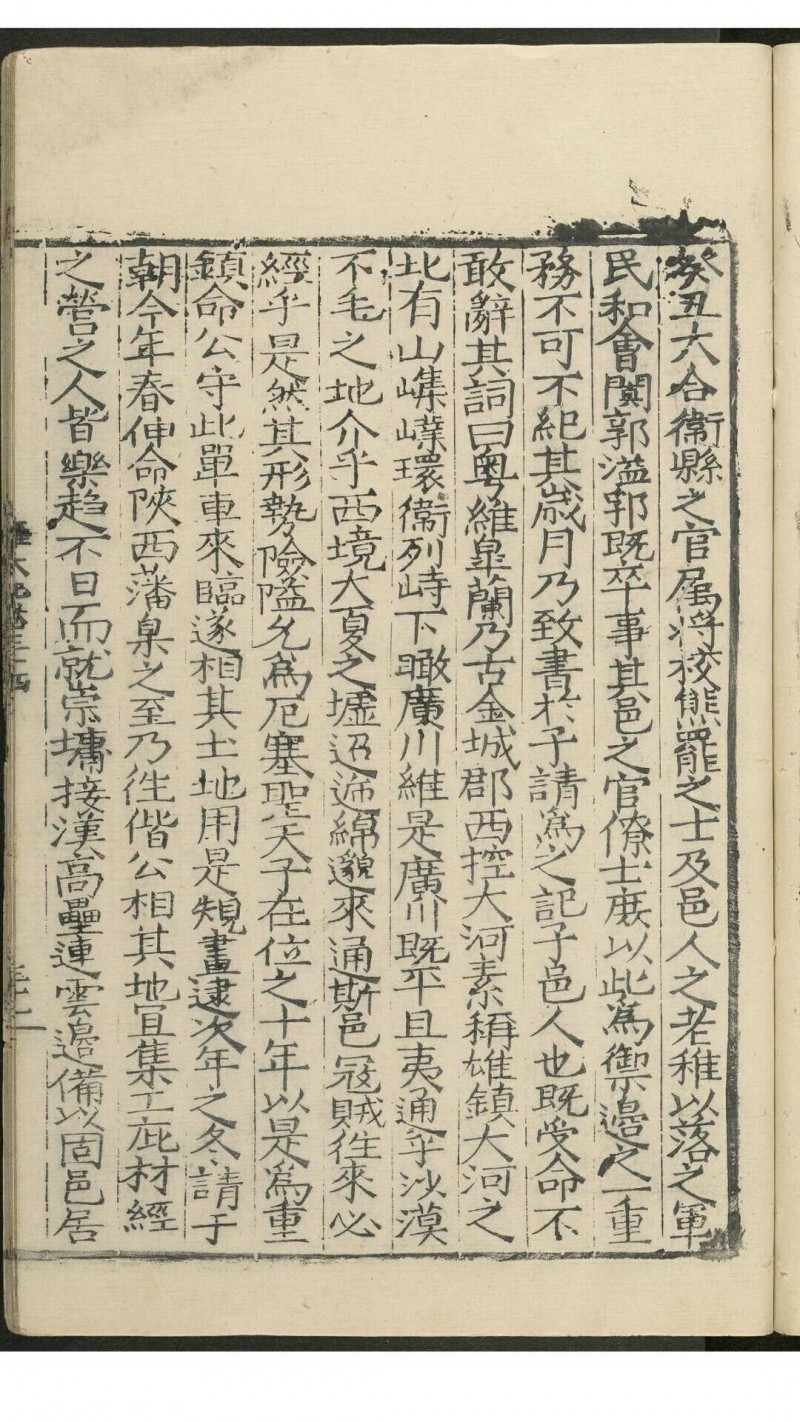 癸丑大合衛縣之官属将校熊羆之士及邑人之老稚以落之軍
民和會闐郭溢郛既卒事其邑之官僚士庶以此為禦邊之一重
務不可不紀其歳月乃致書扵予請為之記予邑人也既受命不
敢辭其詞曰粤維皐蘭乃古金城郡西控大河素稱雄鎮大河之
北有山㠎嶫環衛列峙下瞰廣川維是廣川既平且夷通乎沙漠
不毛之地介乎西境大夏之墟迢遞綿邈來通斯邑冦賊徃來必
經乎是然其形勢險隘允為厄塞聖天子在位之十年以是為重
鎮命公守此單車來臨遂相其土地用是規畫逮次年之冬請于
朝今年春伸命陜西藩臬之至乃徃偕公相其地宜集工庀材經
之營之人皆樂趋不日而就崇墉接漢高壘連雲邊備以固邑居